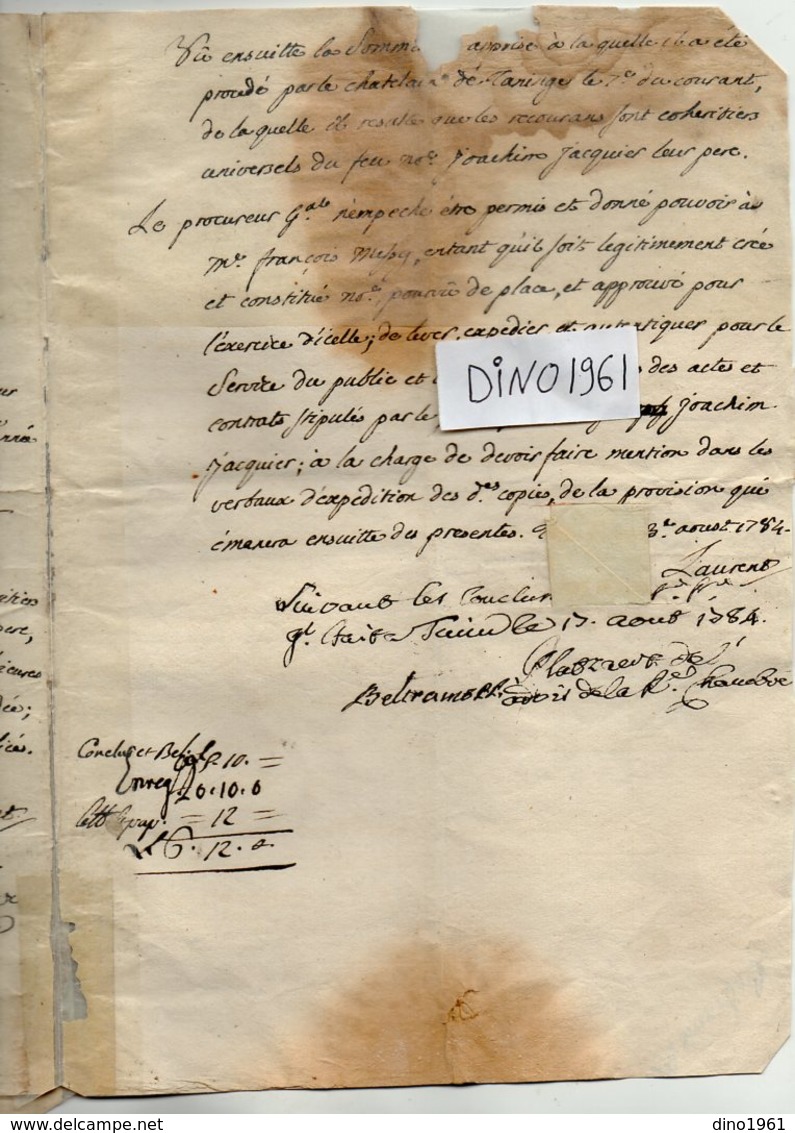 Vû ensuitte la Somm apprise à la quelle il a été
procedé par le chatelain de Taninge le 7.e du courant,
de la quelle il resulte que les recourans sont coheritiers
universels du feu no.re joachim jacquier leur pere.
Le procureur G.ale n'empeche être permis et donné pouvoir à
M.e françois, entant qu'il soit legitimement créé
et constitué no.re, pourvû de place, et approuvé pour
l'exercice d'icelle; de lever, expedier et autentiquer pour le
Service du public et des actes et
contrats stipulés par le joachim
jacquier; à la charge de devoir faire mention dans les
verbaux d'éxpedition des d.es copies, de la provision qui
émanera ensuitte des presentes. 3.e aoust 1784.
DINO1961
Laurent
Suivant les Conclu
gl. Fait à Turin le 17. aout 1784.
Beltramo
avis de la R.e
Conclus et 5.10. =
Enreg 20.10.0
= 12 =
6.12.
delcampe.net
dino1961